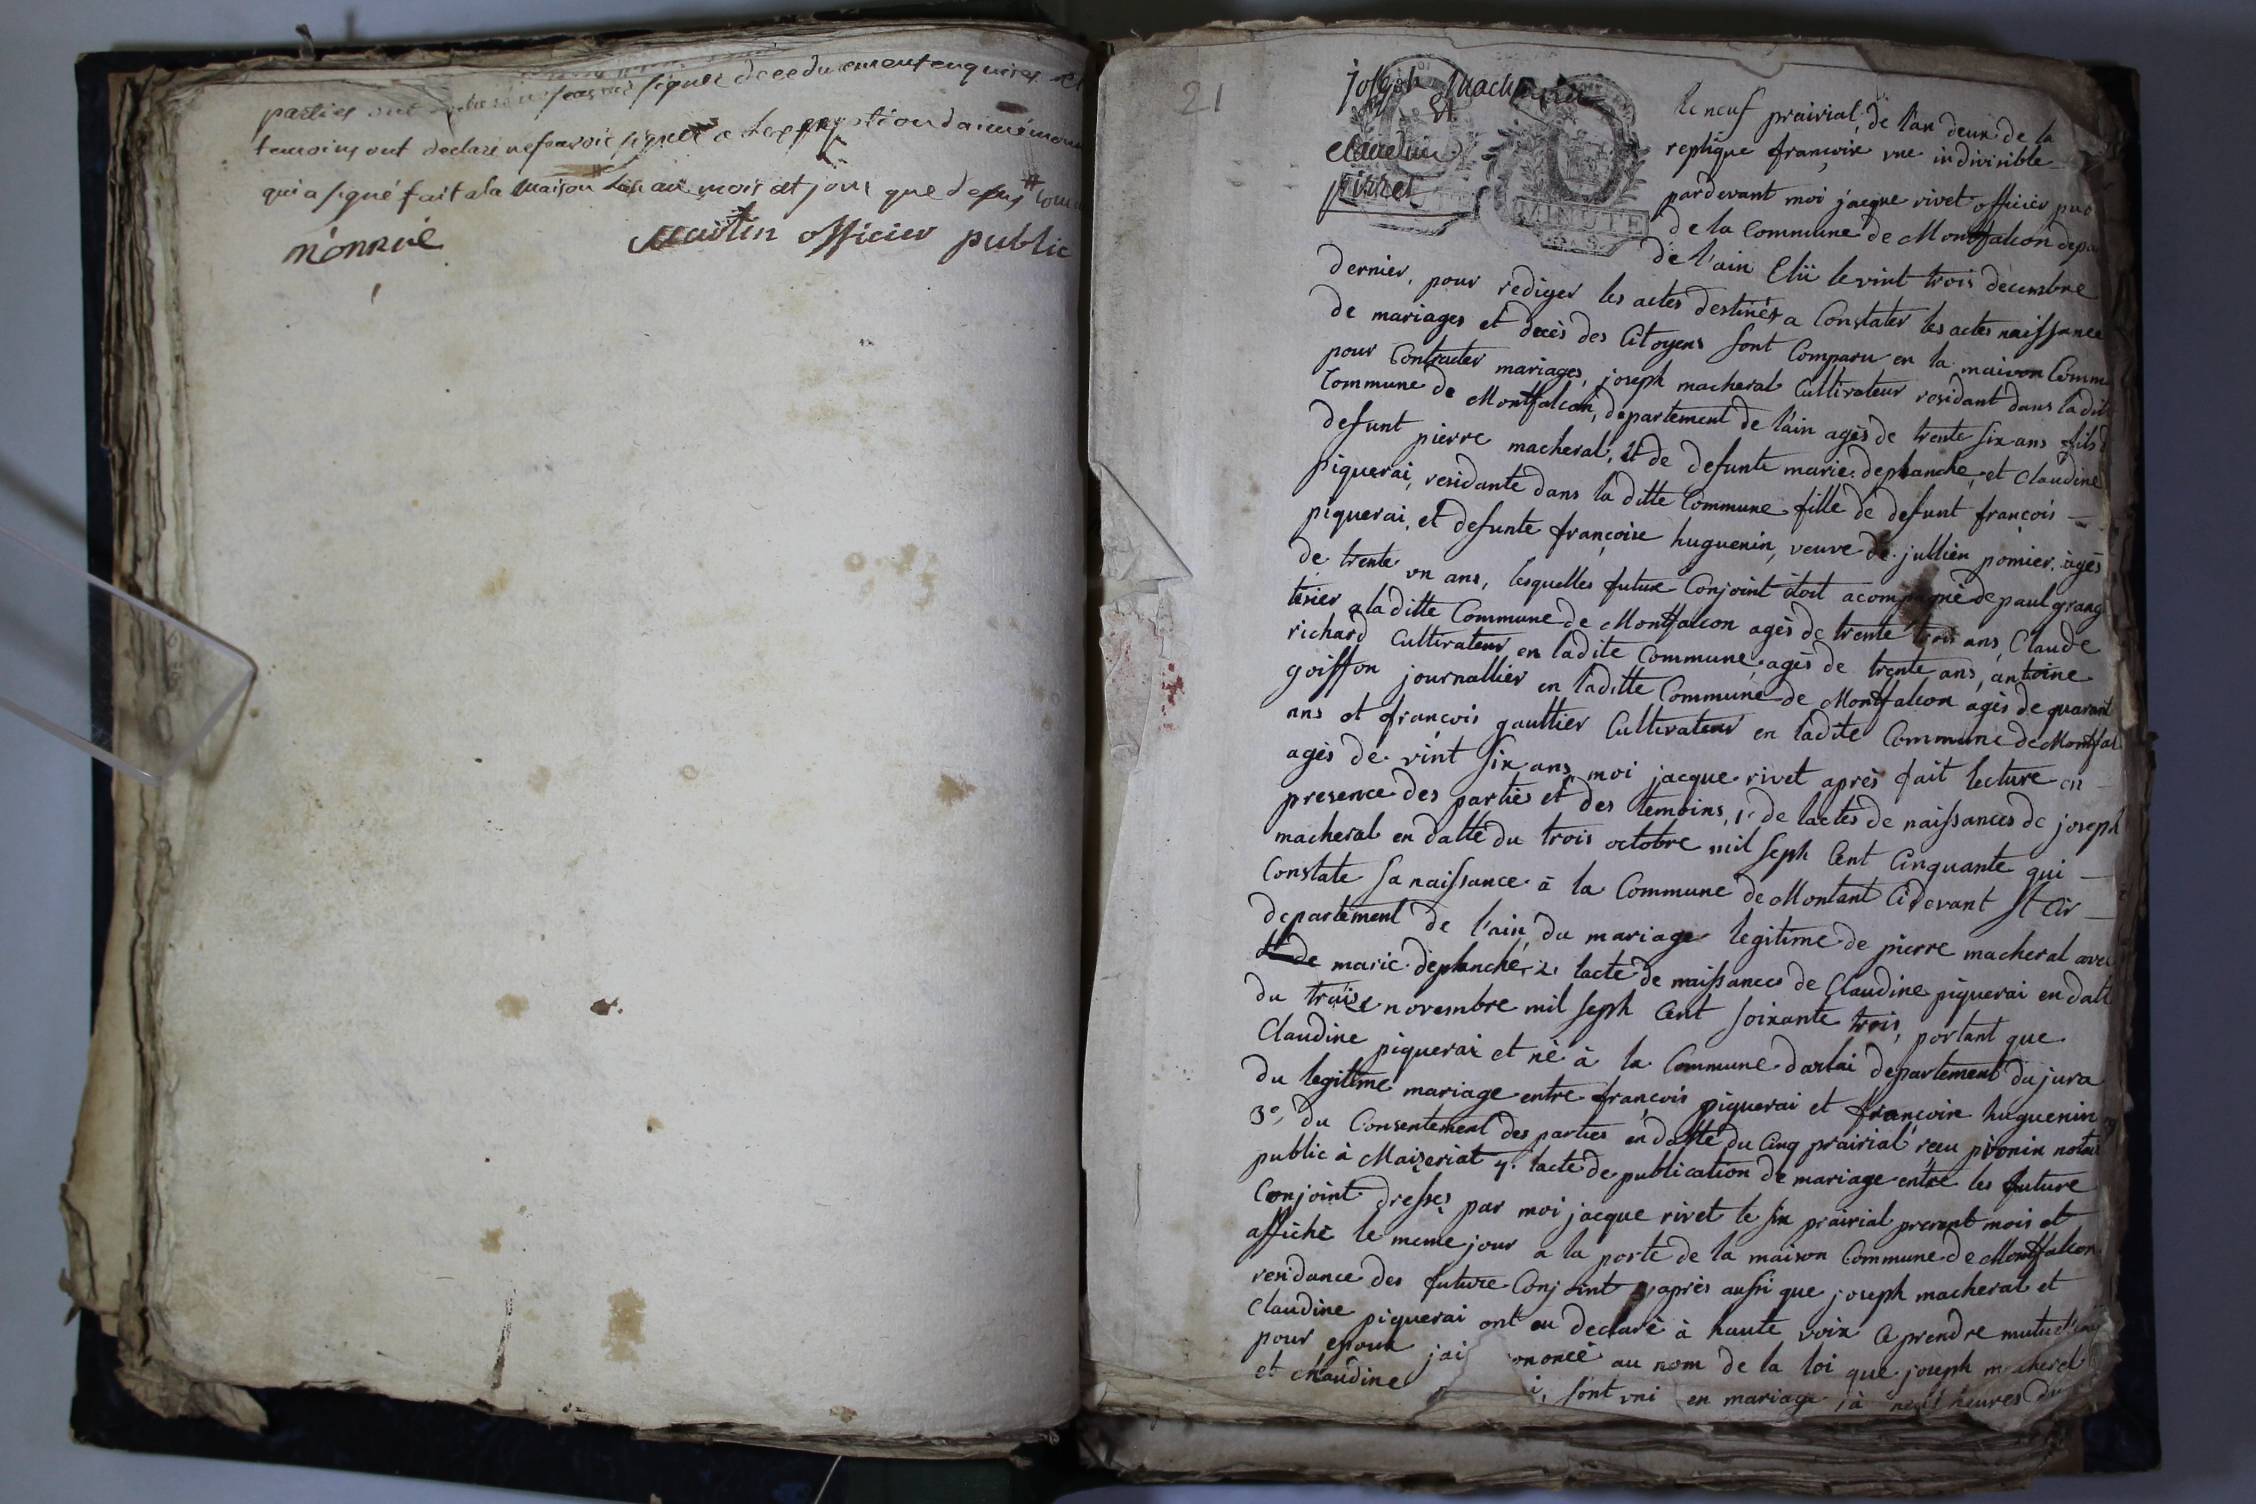 parties ont signer de ce duement enquises et
temoins ont declaré ne savoir signer a lexception daimé
qui a signé fait a la maison au mois et jour que depuis
monnié
Martin officier public
21
joseph
&
claudine
MINUTE
le neuf prairial, de l'an deux de la
replique françoise une indivisible
pardevant moi jacque rivet officier pub
de la Commune de Montfalcon depa
de l'ain Elü le vint trois decembre
dernier, pour rediger les actes destinés a Constater les actes naissance
de mariages et decès des Citoyens sont Comparu en la maison Comm
pour Contracter mariages, joseph macheral Cultivateur residant dans ladit
Commune de Montfalcon, departement de l'ain agès de trente six ans fils d
defunt pierre macheral, et de defunte marie deplanche, et Claudine
piquerai, residante dans la ditte Commune fille de defunt francois
piquerai, et defunte françoise huguenin, veuve de jullien pomier, agès
de trente un ans, lesquelles future Conjoint étoit acompagné de paul grang
a la ditte Commune de Montfalcon agès de trente trois ans, Claude
richard Cultivateur en ladite Commune, agès de trente ans, antoine
goiffon journallier en laditte Commune de Montfalcon agès de quarant
ans et françois gaultier Cultivateur en ladite Commune de Montfal
agès de vint six ans, moi jacque rivet après fait lecture en
presence des parties et des temoins, 1. de lactes de naissances de joseph
macheral en datte du trois octobre mil seph Cent Cinquante qui
Constate sa naissance à la Commune de Montant Cidevant St Cir
departement de l'ain, du mariage legitime de pierre macheral avec
et de marie deplanche, 2. lacte de naissances de Claudine piquerai en datt
du traize novembre mil seph Cent soixante trois, portant que
Claudine piquerai et nè à la Commune darlai departement du jura
du legitime mariage entre françois piquerai et françoise huguenin
3°, du Consentement des parties en datte du Cinq prairial recu pivonin notai
public à Maizeriat 4. lacte de publication de mariage entre les future
Conjoint dressez par moi jacque rivet le six prairial present mois et
affiché le meme jour a la porte de la maison Commune de Montfalcon
residance des future Conjoint après aussi que joseph macheral et
Claudine piquerai ont eu declaré à haute voix Ce prendre
pour epoux jai ononcé au nom de la loi que joseph macheral
et Claudine i, sont uni en mariage, à neuf heures du